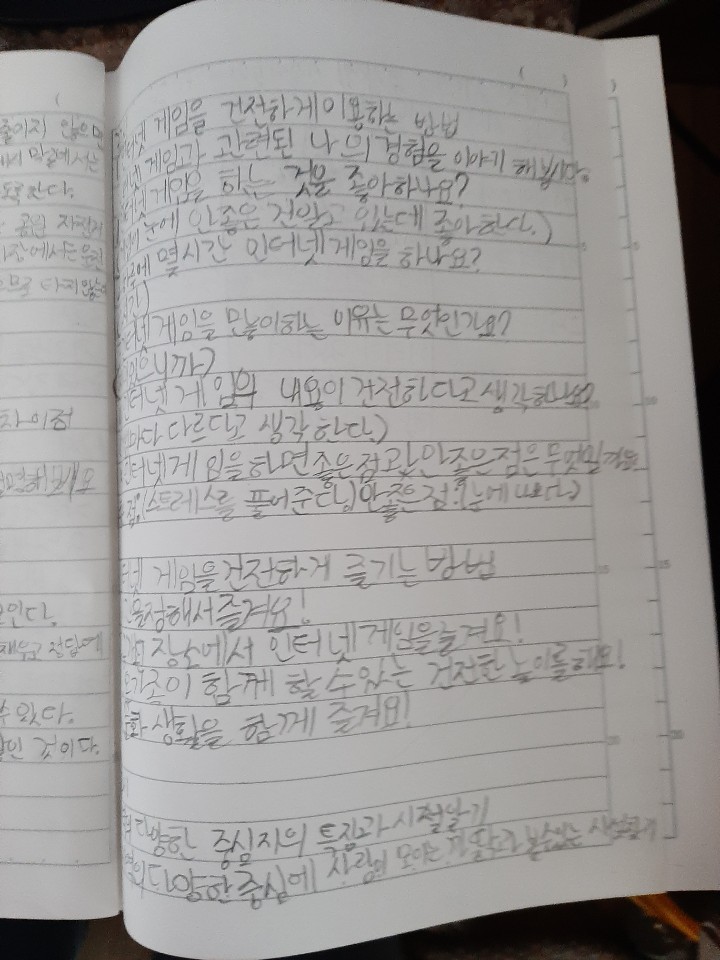 줄이지 않은
막에서는
자전거
타지 않는
차이점
모인다.
수 있다.
인 것이다.
터넷 게임을 건전하게 이용하는 방법
넷 게임과 관련된 나의 경험을 이야기 해봅시다.
터넷 게임을 하는 것을 좋아하나요?
눈에 안좋은 건 알고 있는데 좋아한다.)
에 몇시간 인터넷 게임을 하나요?
넷 게임을 많이 하는 이유는 무엇인가요?
있으니까)
터넷 게임의 내용이 건전하다고 생각하나요?
마다 다르다고 생각한다.)
인터넷 게임을 하면 좋은점과 안좋은점은 무엇일까요
점:(스트레스를 풀어준다) 안좋은점:(눈에 나쁘다)
터넷 게임을 건전하게 즐기는 방법
을 정해서 즐겨요!
장소에서 인터넷 게임을 즐겨요!
가족이 함께 할 수 있는 건전한 놀이를 해요!
화 생활을 함께 즐겨요!
다양한 중심지의 특징과 시설 알기
의 다양한 중심에 사람이 모이는 까닭과 볼수있는 시설알기